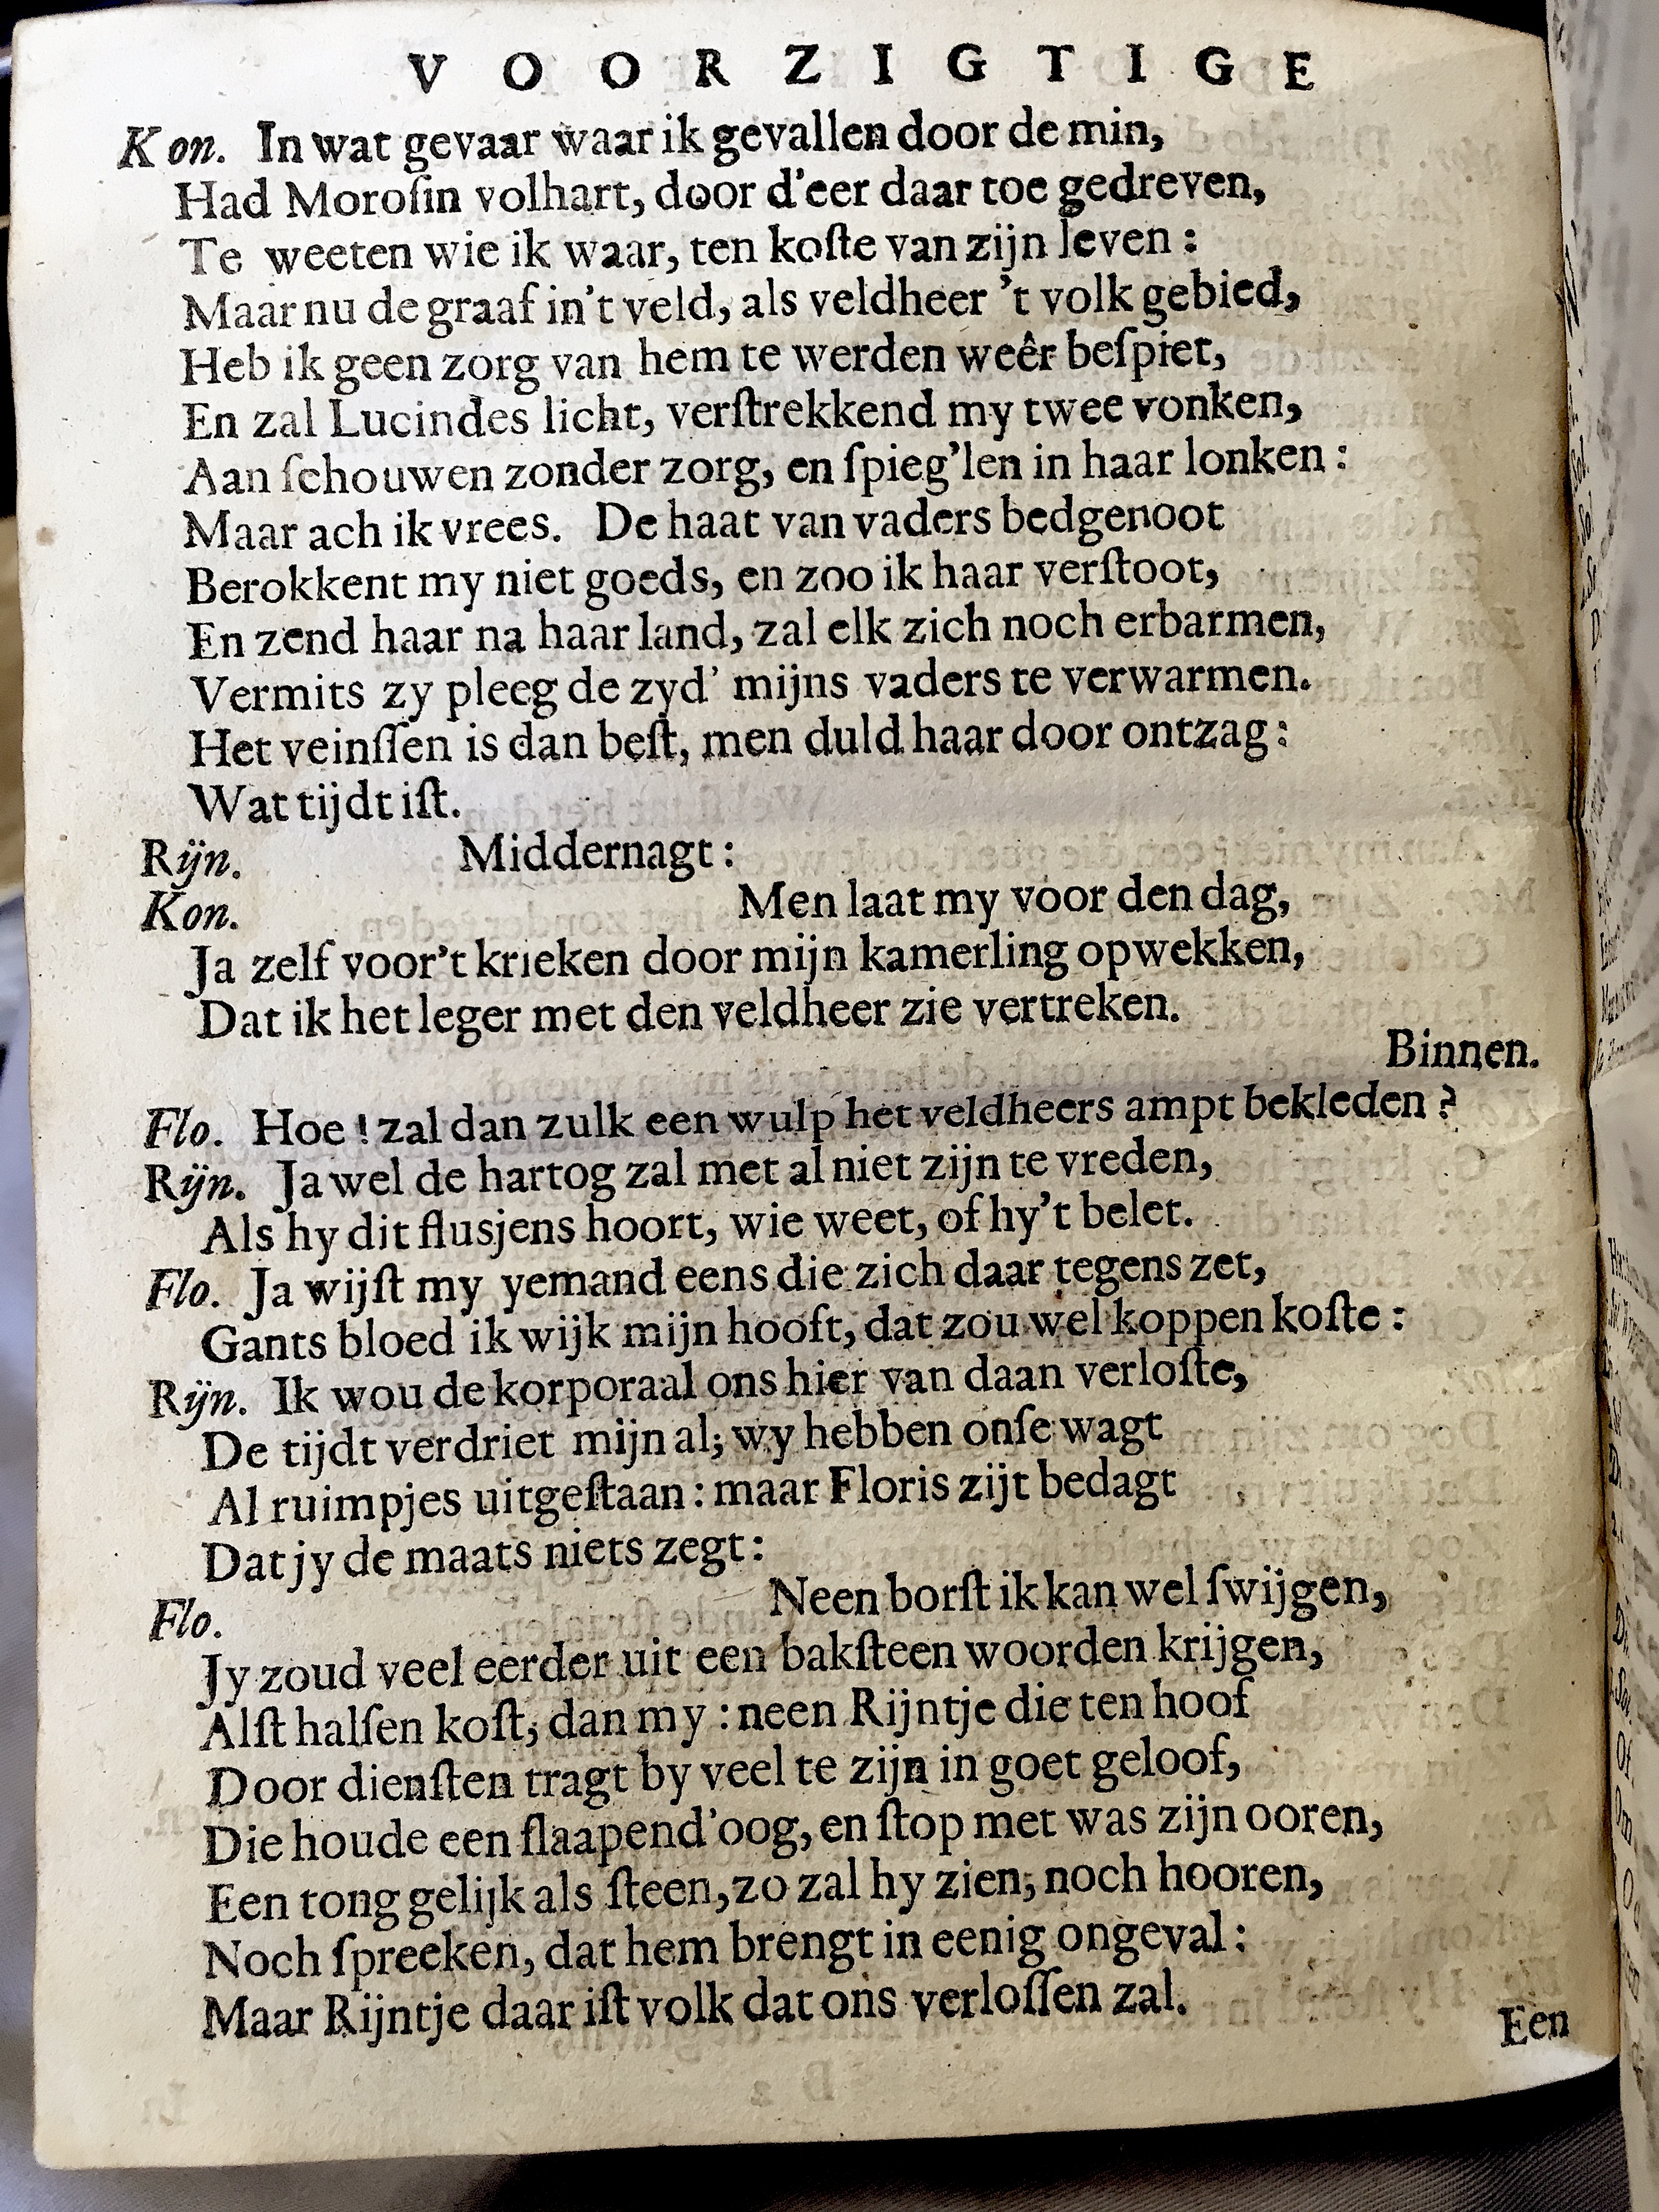 VOORZIGTIGE
Kon. In wat gevaar waar ik gevallen door de min,
Had Moroſin volhart, door d'eer daar toe gedreven,
Te weeten wie ik waar, ten koſte van zijn leven :
Maar nu de graaf in't veld, als veldheer 't volk gebied,
Heb ik geen zorg van hem te werden weêr beſpiet,
En zal Lucindes licht, verſtrekkend my twee vonken,
Aan ſchouwen zonder zorg, en ſpieg'len in haar lonken :
Maar ach ik vrees. De haat van vaders bedgenoot
Berokkent my niet goeds, en zoo ik haar verſtoot,
En zend haar na haar land, zal elk zich noch erbarmen,
Vermits zy pleeg de zyd' mijns vaders te verwarmen.
Het veinſſen is dan beſt, men duld haar door ontzag :
Wat tijdt iſt.
Rijn. Middernagt :
Kon. Men laat my voor den dag,
Ja zelf voor't krieken door mijn kamerling opwekken,
Dat ik het leger met den veldheer zie vertreken.
Binnen.
Flo. Hoe ! zal dan zulk een wulp het veldheers ampt bekleden ?
Rijn. Ja wel de hartog zal met al niet zijn te vreden,
Als hy dit fluſjens hoort, wie weet, of hy't belet.
Flo. Ja wijſt my yemand eens die zich daar tegens zet,
Gants bloed ik wijk mijn hooft, dat zou wel koppen koſte :
Rijn. Ik wou de korporaal ons hier van daan verloſte,
De tijdt verdriet mijn al; wy hebben onſe wagt
Al ruimpjes uitgeſtaan : maar Floris zijt bedagt
Dat jy de maats niets zegt :
Flo. Neen borſt ik kan wel ſwijgen,
Jy zoud veel eerder uit een bakſteen woorden krijgen,
Alſt halſen koſt, dan my : neen Rijntje die ten hoof
Door dienſten tragt by veel te zijn in goet geloof,
Die houde een ſlaapend'oog, en ſtop met was zijn ooren,
Een tong gelijk als ſteen, zo zal hy zien, noch hooren,
Noch ſpreeken, dat hem brengt in eenig ongeval :
Maar Rijntje daar iſt volk dat ons verloſſen zal.
Een